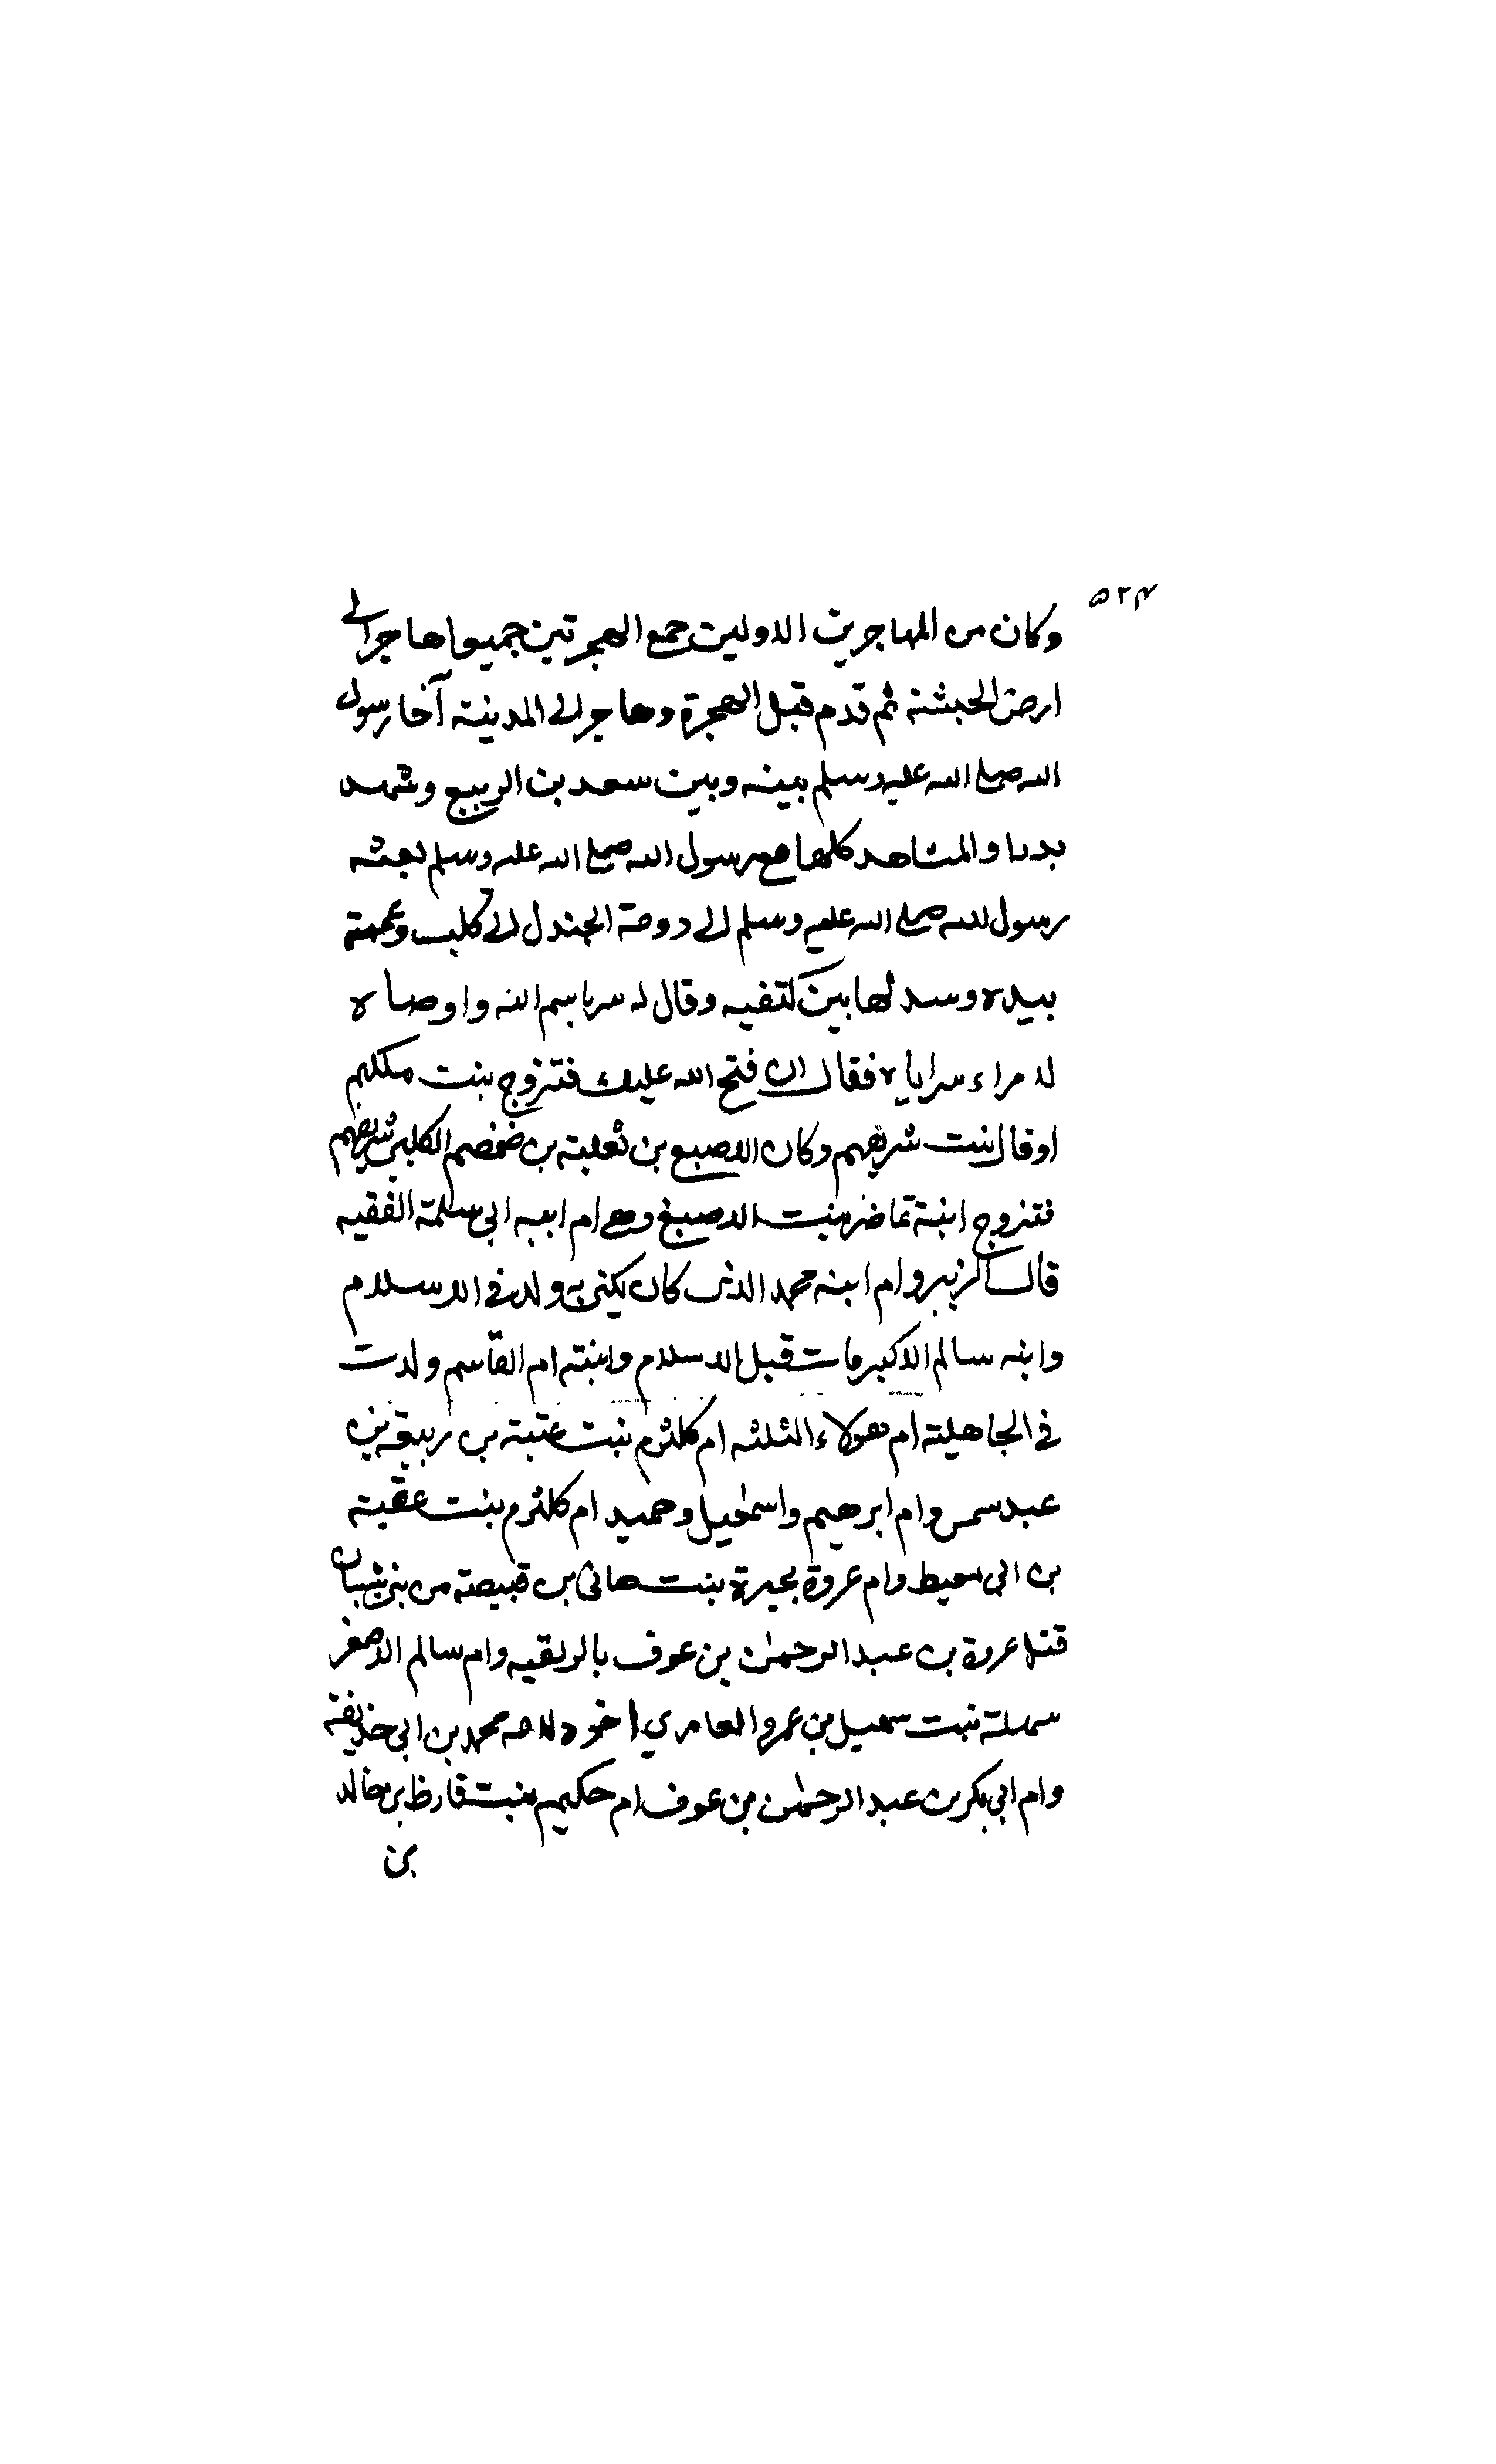 ٥٢٤
وكان من المهاجرين الاولين جمع الهجرتين جميعا هاجر الى
ارض الحبشة ثم قدم قبل الهجرة وهاجر الى المدينة آخا رسول
الله صلى الله عليه وسلم بينه وبين سعد بن الربيع وشهد
بدرا والمشاهد كلها مع رسول الله صلى الله عليه وسلم بعثه
رسول الله صلى الله عليه وسلم الى دومة الجندل الى كلب وعممه
بيده وسدلها بين كتفيه وقال له سر باسم الله واوصاه
لامراء سراياه فقال ان فتح الله عليك فتزوج بنت ملكهم
او قال بنت شريفهم وكان الاصبع بن ثعلبة بن ضمضم الكلبي شريفهم
فتزوج ابنة تماضر بنت الاصبغ وهي ام ابيه ابي سلمة الفقيه
قال الزبير وام ابنه محمد الذى كان يكنى به ولد في الاسلام
وابنه سالم الاكبر مات قبل الاسلام وابنته ام القاسم ولدت
في الجاهلية ام هولاء الثلثه ام كلثوم بنت عتبة بن ربيعة بن
عبد سمس وام ابرهيم واسمٰعيل وحميد ام كلثوم بنت عقبة
بن ابي معيط وام عروة بحيرة بنت هانئ بن قبيصة من بني شيبان
قتل عروة بن عبد الرحمٰن بن عوف بافريقيه وام سالم الاصغر
سهلة بنت سهيل بن عمرو العامري اخوه لامه محمد بن ابي حذيفة
وام ابي بكر بن عبد الرحمٰن بن عوف ام حكيم بنت قارظ بن خالد
بن